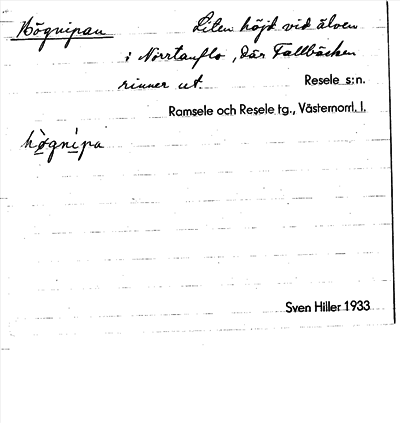 Högnipan Liten höjd vid älven
i Norrtanflo, där Tallbäcken
rinner ut. Resele s:n.
Ramsele och Resele tg., Västernorrl. l.
hògnìpa
Sven Hiller 1933